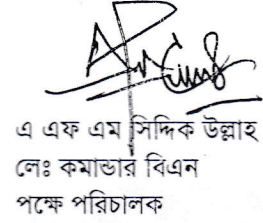 এ এফ এম সিদ্দিক উল্লাহ
লেঃ কমান্ডার বিএন
পক্ষে পরিচালক